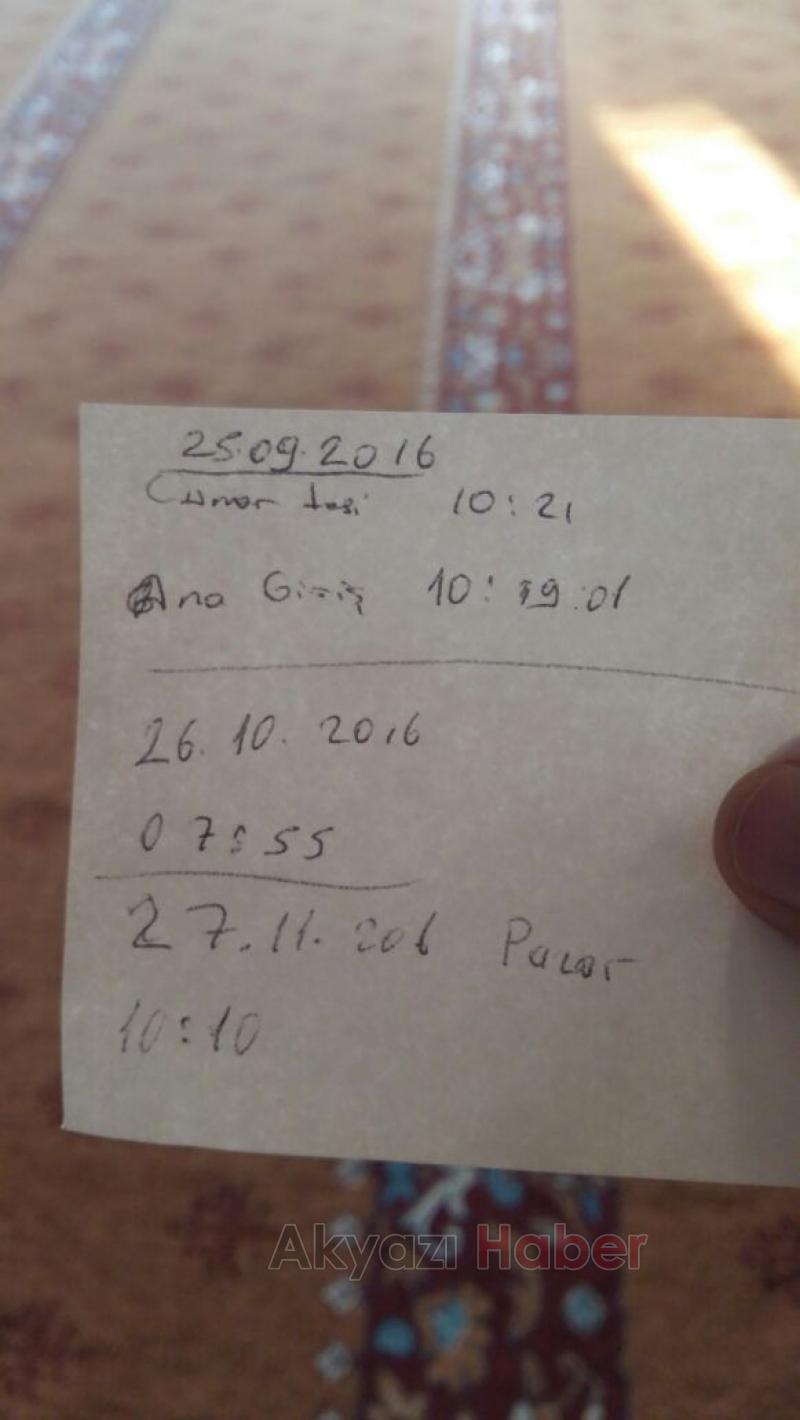 25.09.2016
Cumar tesi 10:21
Ana Giriş 10:19:01
26.10.2016
07:55
27.11.2016 Pazar
10:10
Akyazı Haber